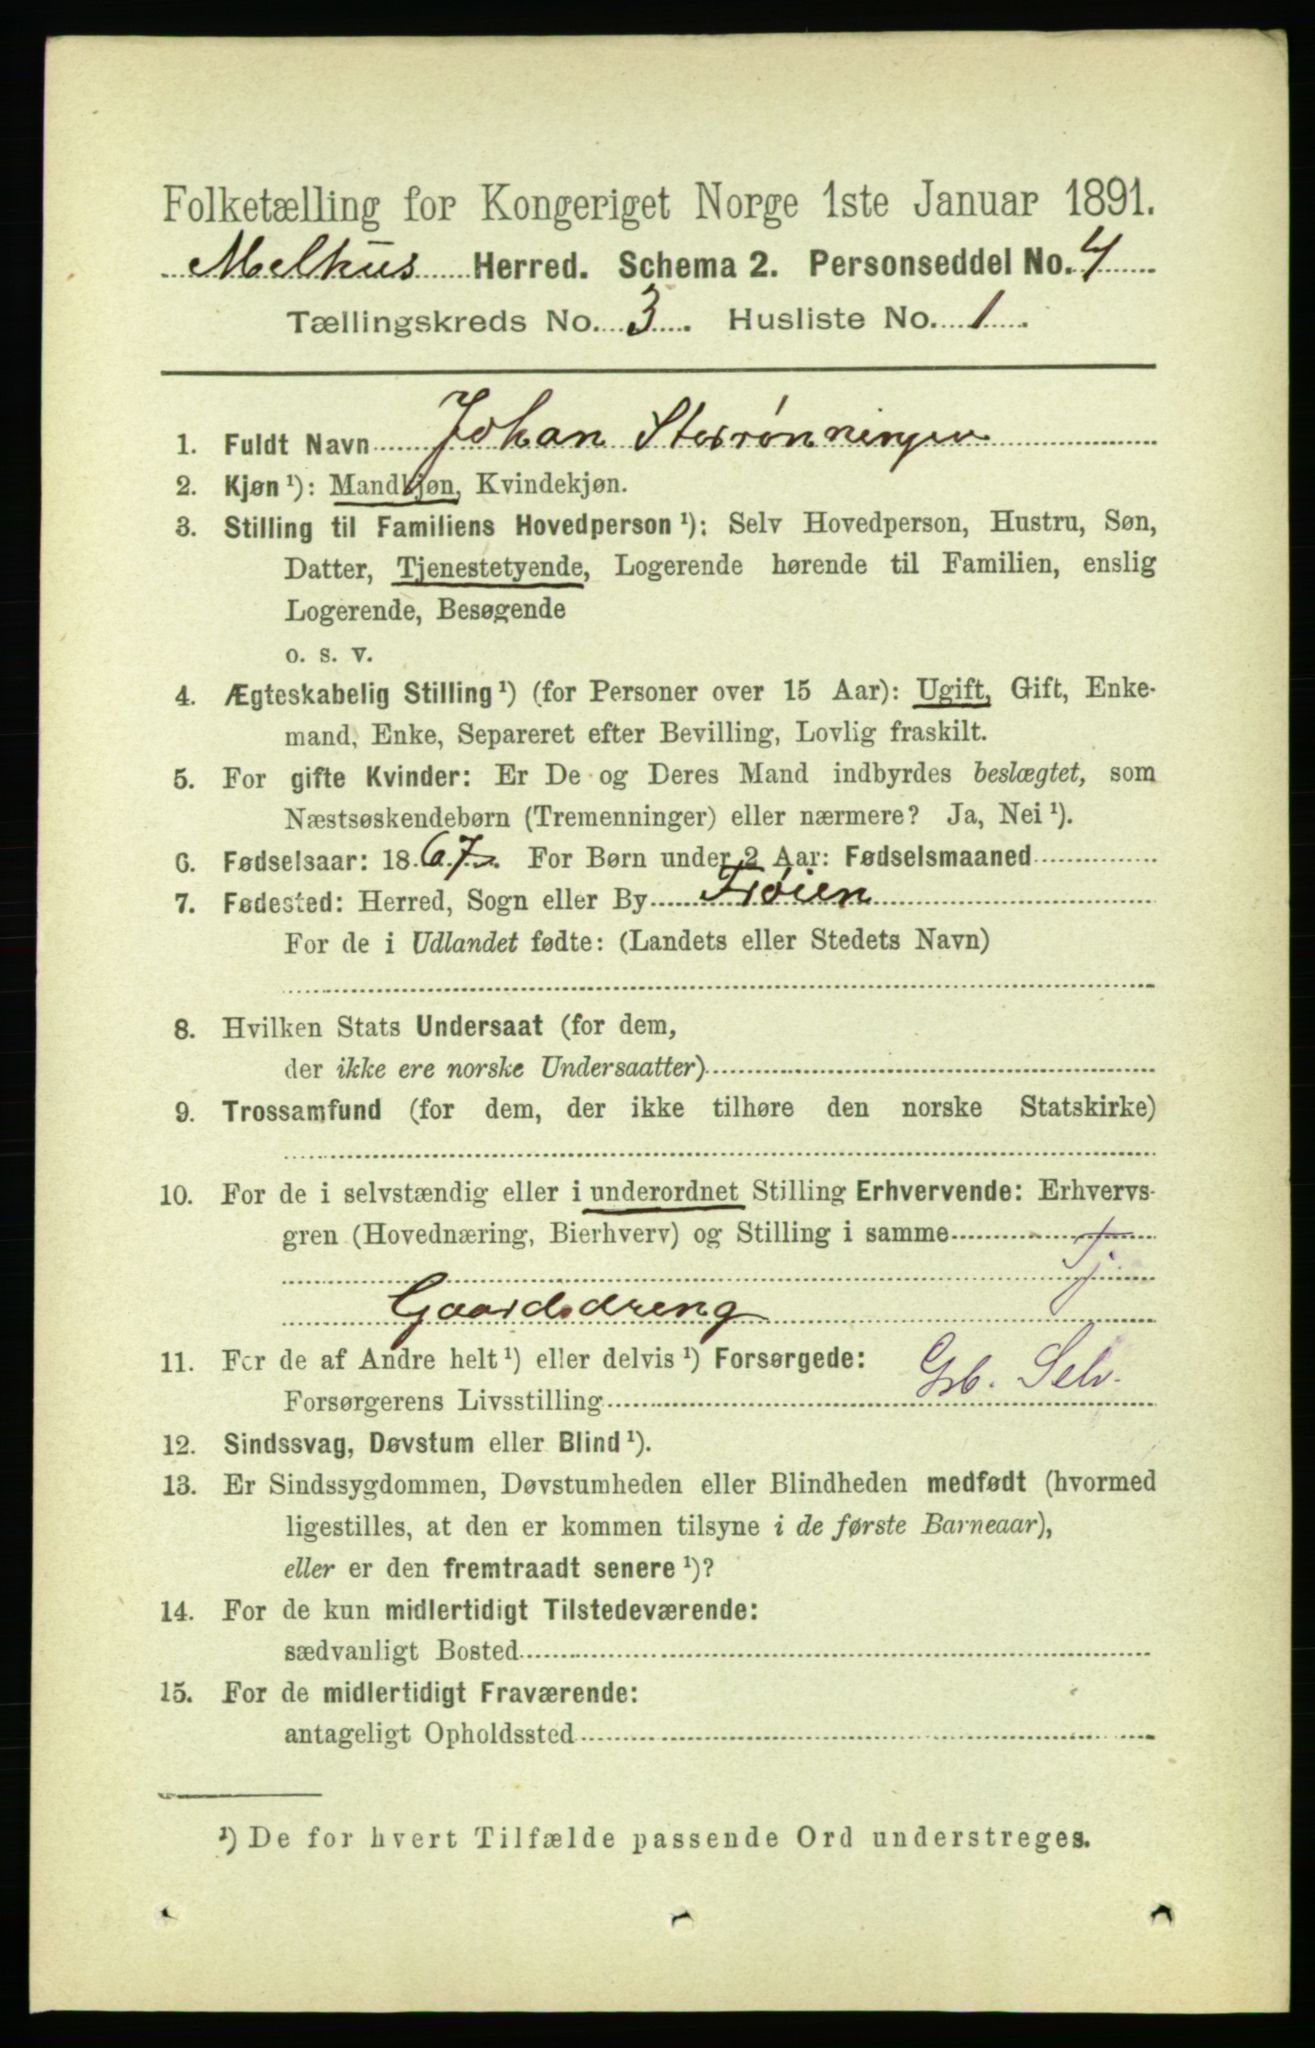 Folketælling for Kongeriget Norge 1ste Januar 1891.
Melhus Herred. Schema 2. Personseddel No. 4
Tællingskreds No. 3. Husliste No. 1.
1. Fuldt Navn Johan Storrønningen
2. Kjøn ¹): Mandkjøn, Kvindekjøn.
3. Stilling til Familiens Hovedperson ¹): Selv Hovedperson, Hustru, Søn,
Datter, Tjenestetyende, Logerende hørende til Familien, enslig
Logerende, Besøgende
o. s. v.
4. Ægteskabelig Stilling ¹) (for Personer over 15 Aar): Ugift, Gift, Enke-
mand, Enke, Separeret efter Bevilling, Lovlig fraskilt.
5. For gifte Kvinder: Er De og Deres Mand indbyrdes beslægtet, som
Næstsøskendebørn (Tremenninger) eller nærmere? Ja, Nei ¹).
6. Fødselsaar: 1867. For Børn under 2 Aar: Fødselsmaaned
7. Fødested: Herred, Sogn eller By Frøien
For de i Udlandet fødte: (Landets eller Stedets Navn)
8. Hvilken Stats Undersaat (for dem,
der ikke ere norske Undersaatter)
9. Trossamfund (for dem, der ikke tilhøre den norske Statskirke)
10. For de i selvstændig eller i underordnet Stilling Erhvervende: Erhvervs-
gren (Hovednæring, Bierhverv) og Stilling i samme
Tj
Gaardsdreng
11. For de af Andre helt ¹) eller delvis ¹) Forsørgede: Grb. Selv.
Forsørgerens Livsstilling
12. Sindssvag, Døvstum eller Blind ¹).
13. Er Sindssygdommen, Døvstumheden eller Blindheden medfødt (hvormed
ligestilles, at den er kommen tilsyne i de første Barneaar),
eller er den fremtraadt senere ¹)?
14. For de kun midlertidigt Tilstedeværende:
sædvanligt Bosted
15. For de midlertidigt Fraværende:
antageligt Opholdssted
¹) De for hvert Tilfælde passende Ord understreges.